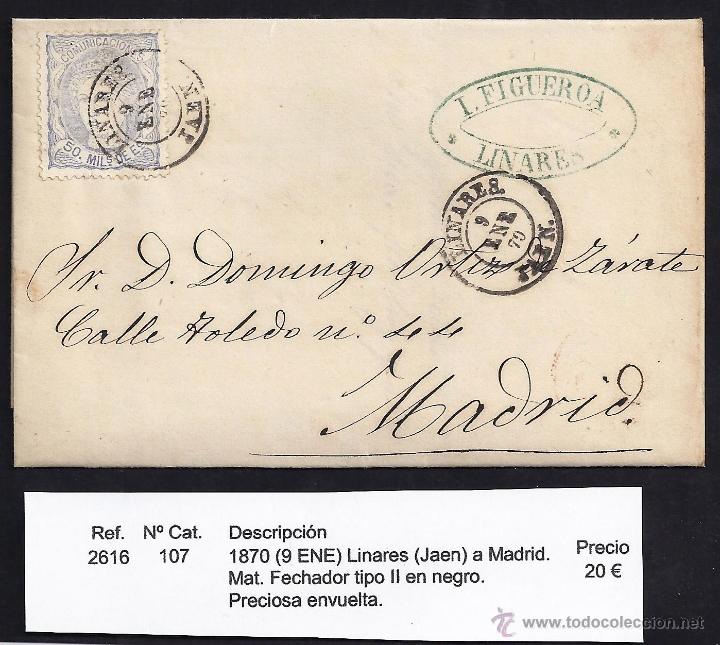 COMUNICACIONES
50. MILS DE E
LINARES.
9
ENE
JAEN
I. FIGUEROA
* LINARES *
LINARES.
9
ENE
70
JAEN.
Sr. D. Domingo Ortiz de Zárate
Calle Toledo nº. 44
Madrid.
Ref. Nº Cat. Descripción Precio
2616 107 1870 (9 ENE) Linares (Jaen) a Madrid. 20 €
Mat. Fechador tipo II en negro.
Preciosa envuelta.
www.todocoleccion.net